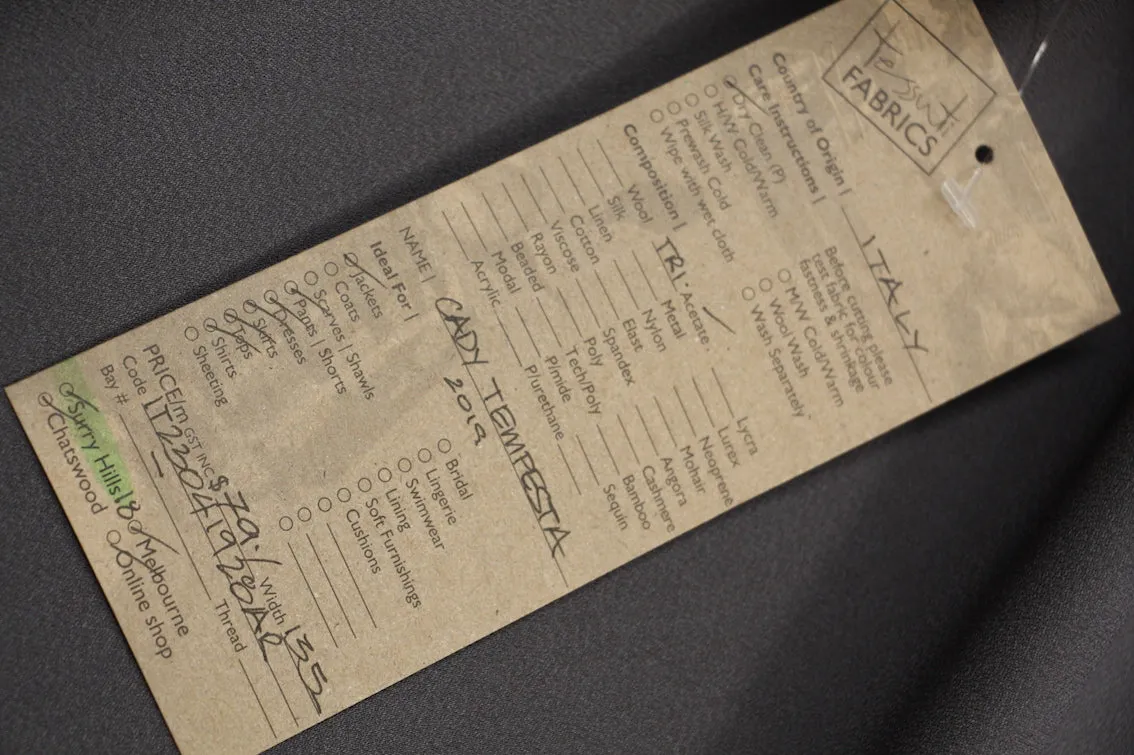 tessuti
FABRICS
Country of Origin | ITALY
Care Instructions |
Dry Clean (P)
H/W Cold/Warm
Silk Wash
Prewash Cold
Wipe with wet cloth
Before cutting please
test fabric for colour
fastness & shrinkage
M/W Cold/Warm
Wool Wash
Wash Separately
Composition | TRI.
Wool
Silk
Linen
Cotton
Viscose
Rayon
Beaded
Modal
Acrylic
Acetate
Metal
Nylon
Elast
Spandex
Poly
Tech/Poly
P/mide
P/urethane
Lycra
Lurex
Neoprene
Mohair
Angora
Cashmere
Bamboo
Sequin
NAME | CADY TEMPESTA
2019
Ideal For |
Jackets
Coats
Scarves | Shawls
Pants | Shorts
Dresses
Skirts
Tops
Shirts
Sheeting
Bridal
Lingerie
Swimwear
Lining
Soft Furnishings
Cushions
PRICE/m GST INC $79./ Width 135
Code
Bay # Thread
Surry Hills 18 Melbourne
Chatswood Online shop